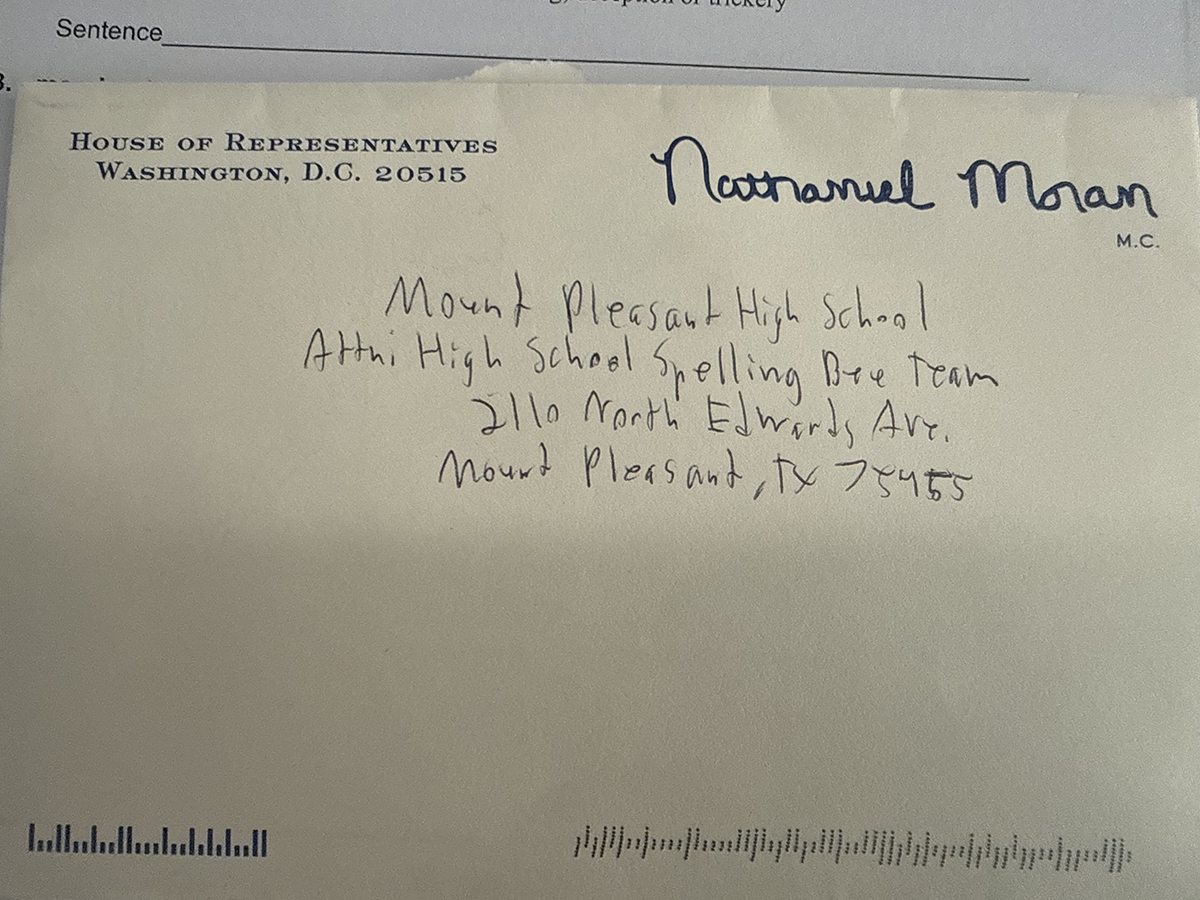 or trickery
Sentence
3.
HOUSE OF REPRESENTATIVES
WASHINGTON, D.C. 20515
Nathaniel Moran
M.C.
Mount Pleasant High School
Attn: High School Spelling Bee Team
2110 North Edwards Ave.
Mount Pleasant, TX 75455